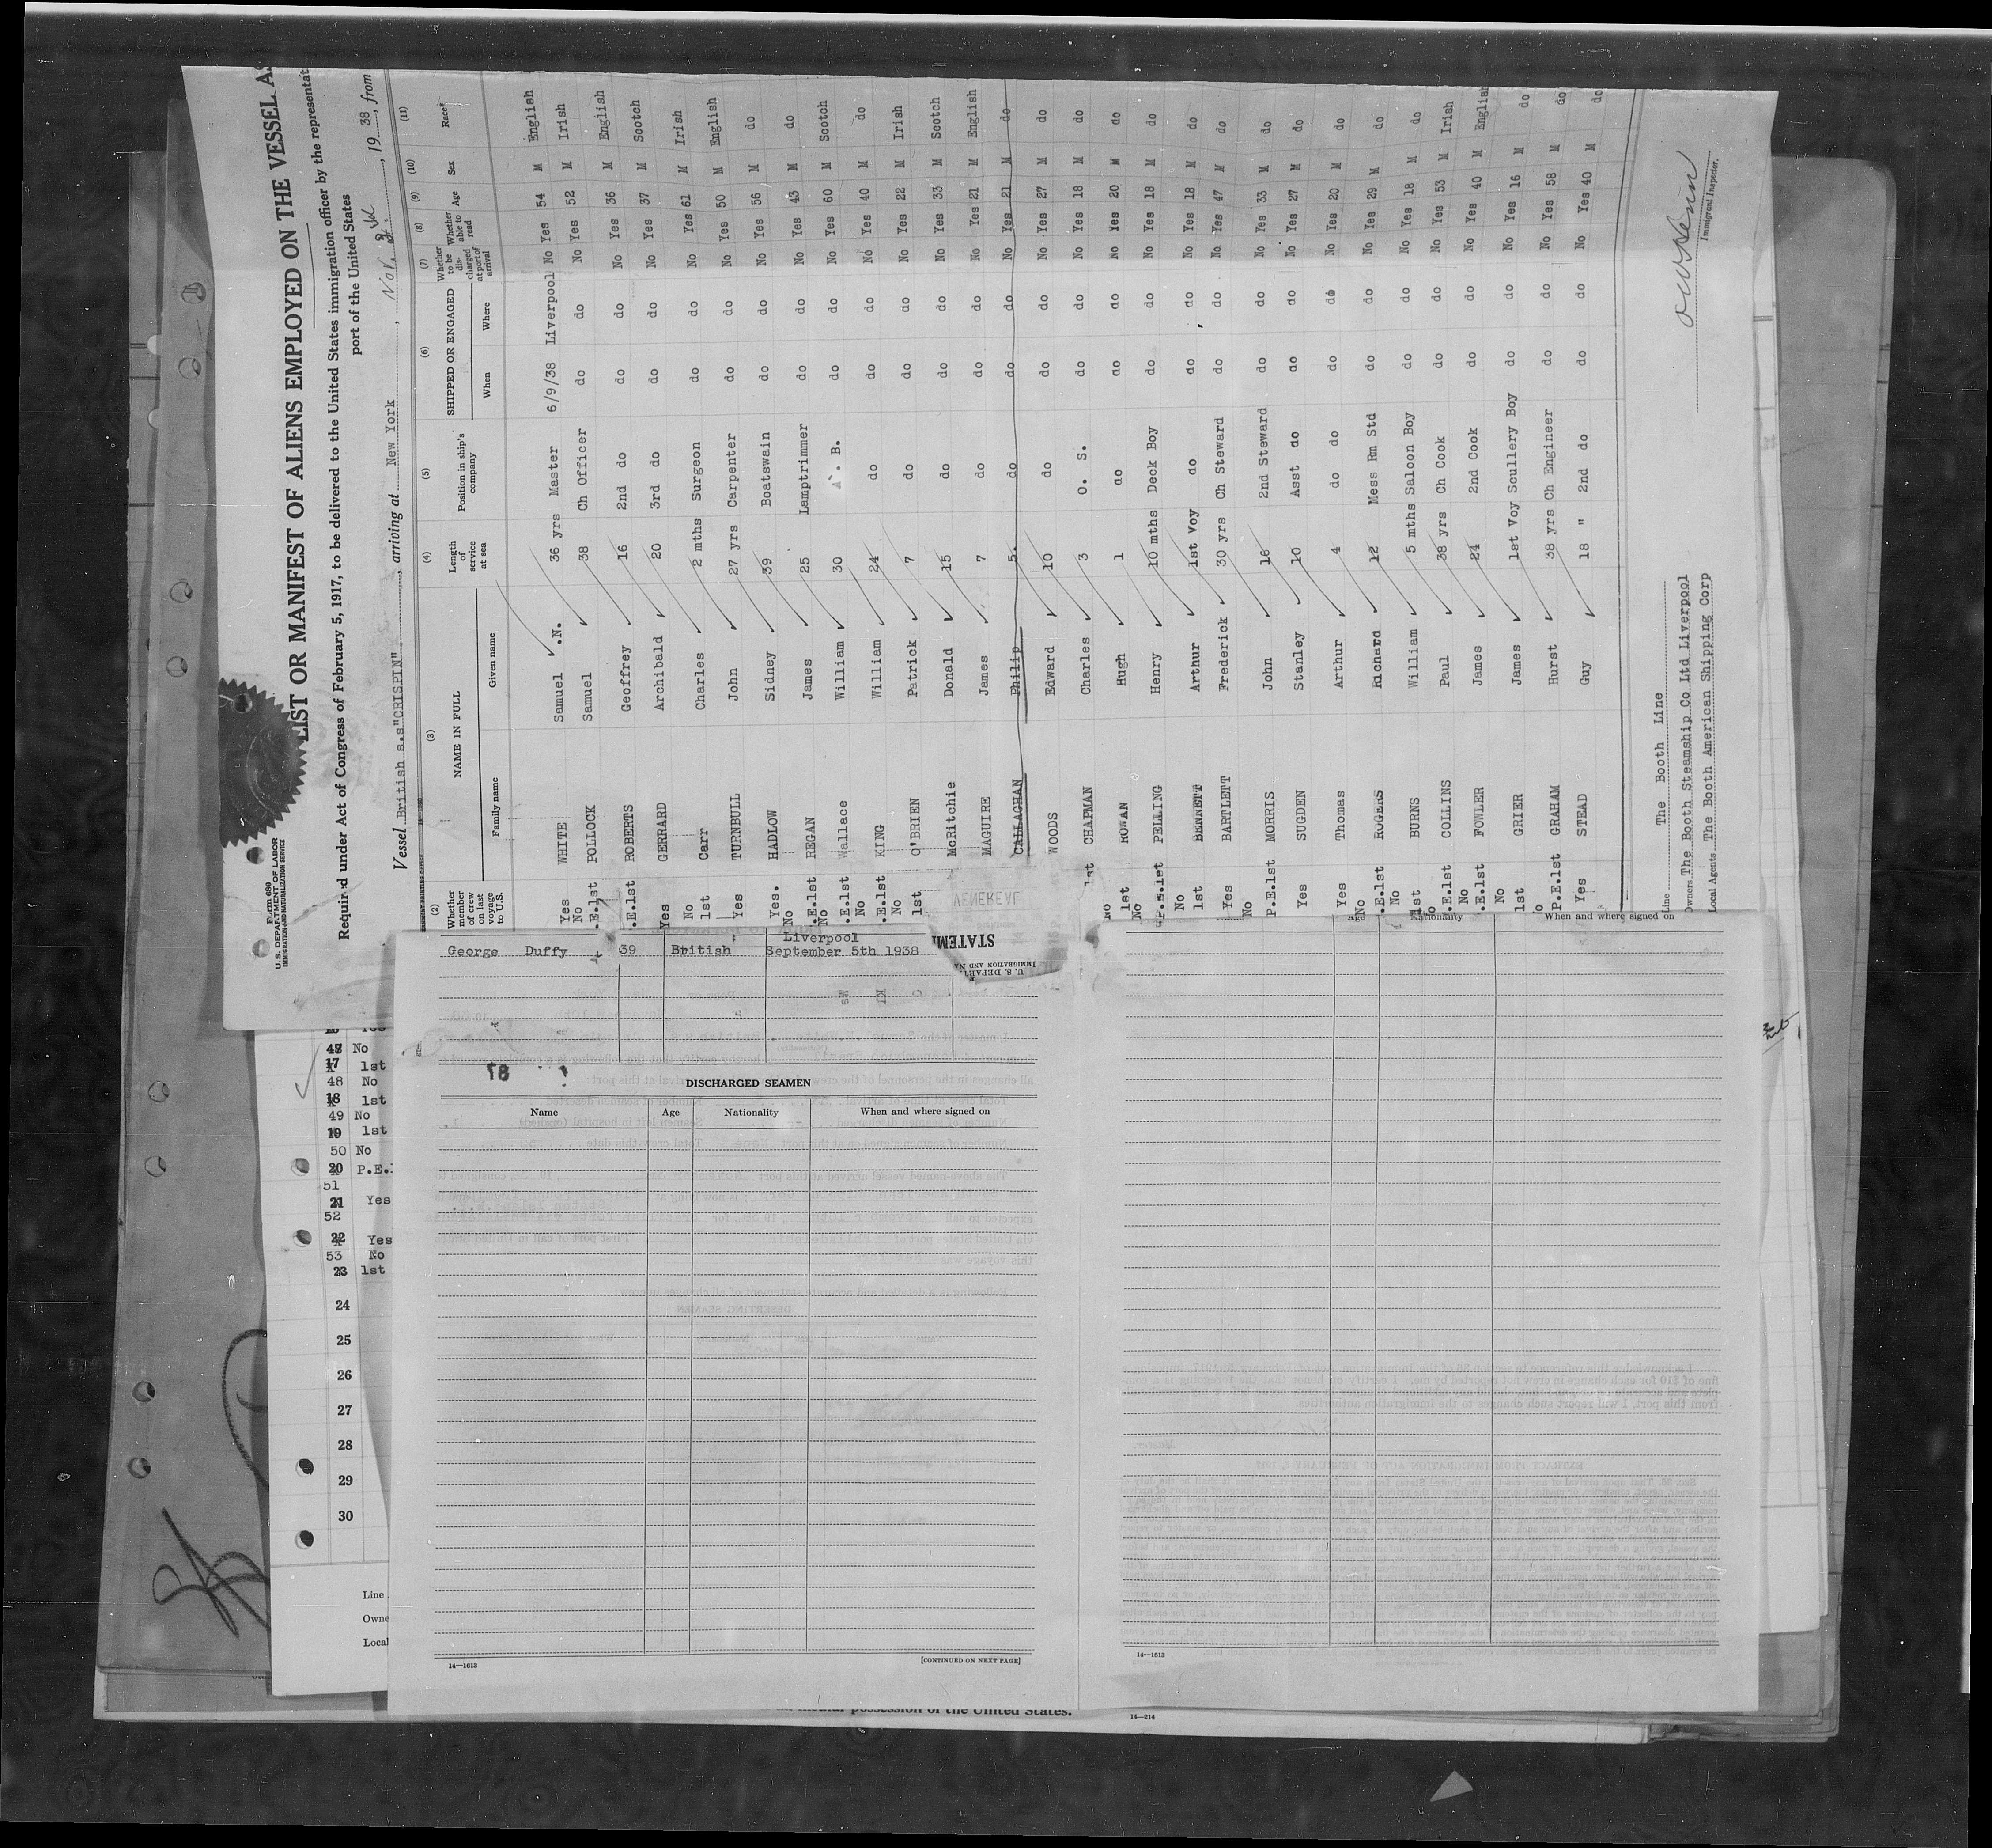 Form 689
U.S. DEPARTMENT OF LABOR
IMMIGRATION AND NATURALIZATION SERVICE
LIST OR MANIFEST OF ALIENS EMPLOYED ON THE VESSEL AS
Required under Act of Congress of February 5, 1917, to be delivered to the United States immigration officer by the representat
port of the United States
Vessel British s.s"CRISPIN", arriving at New York, Nov. , 19 38, from
(2) (3) (4) (5) (6) (7) (8) (9) (10) (11)
Whether member of crew on last voyage to U.S. NAME IN FULL Length of service at sea Position in ship's company SHIPPED OR ENGAGED Whether to be discharged at port of arrival Whether able to read Age Sex Race*
Family name Given name When Where
Yes WHITE Samuel .N. 36 yrs Master 6/9/38 Liverpool No Yes 54 M English
No .E.1st POLLOCK Samuel 38 Ch Officer do do No Yes 52 M Irish
.E.1st ROBERTS Geoffrey 16 2nd do do do No Yes 36 M English
Yes GERRARD Archibald 20 3rd do do do No Yes 37 M Scotch
No 1st Carr Charles 2 mths Surgeon do do No Yes 61 M Irish
Yes TURNBULL John 27 yrs Carpenter do do No Yes 50 M English
Yes. HADLOW Sidney 39 Boatswain do do No Yes 56 M do
No .E.1st REGAN James 25 Lamptrimmer do do No Yes 43 M do
No .E.1st Wallace William 30 A. B. do do No Yes 60 M Scotch
No .E.1st KING William 24 do do do No Yes 40 M do
No 1st O'BRIEN Patrick 7 do do do No Yes 22 M Irish
McRitchie Donald 15 do do do No Yes 33 M Scotch
MAGUIRE James 7 do do do No Yes 21 M English
CALLAGHAN Philip 5. do do do No Yes 21 M do
WOODS Edward 10 do do do No Yes 27 M do
1st CHAPMAN Charles 3 O. S. do do No Yes 18 M do
No 1st ROWAN Hugh 1 do do do No Yes 20 M do
No P.E.1st PELLING Henry 10 mths Deck Boy do do No Yes 18 M do
No 1st BENNETT Arthur 1st Voy do do do No Yes 18 M do
Yes BARTLETT Frederick 30 yrs Ch Steward do do No Yes 47 M do
No P.E.1st MORRIS John 16 2nd Steward do do No Yes 33 M do
Yes SUGDEN Stanley 10 Asst do do do No Yes 27 M do
Yes Thomas Arthur 4 do do do do No Yes 20 M do
No .E.1st ROGERS Richard 12 Mess Rm Std do do No Yes 29 M do
No 1st BURNS William 5 mths Saloon Boy do do No Yes 18 M do
No .E.1st COLLINS Paul 38 yrs Ch Cook do do No Yes 53 M Irish
No .E.1st FOWLER James 24 2nd Cook do do No Yes 40 M English
No 1st GRIER James 1st Voy Scullery Boy do do No Yes 16 M do
P.E.1st GRAHAM Hurst 38 yrs Ch Engineer do do No Yes 58 M do
Yes STEAD Guy 18 " 2nd do do do No Yes 40 M do
Line The Booth Line
Owners The Booth Steamship Co Ltd Liverpool
Local Agents The Booth American Shipping Corp
Immigrant Inspector.
VENEREAL
STATEM
U. S. DEPART
IMMIGRATION AND NA
Liverpool
George Duffy 39 British September 5th 1938
DISCHARGED SEAMEN
Name Age Nationality When and where signed on
14—1613
[CONTINUED ON NEXT PAGE]
Age Nationality When and where signed on
14—1613
47 No
17 1st
48 No
18 1st
49 No
19 1st
50 No
20 P.E.
51
21 Yes
52
22 Yes
53 No
23 1st
24
25
26
27
28
29
30
Line
Owne
Local
possession of the United States.
14—214